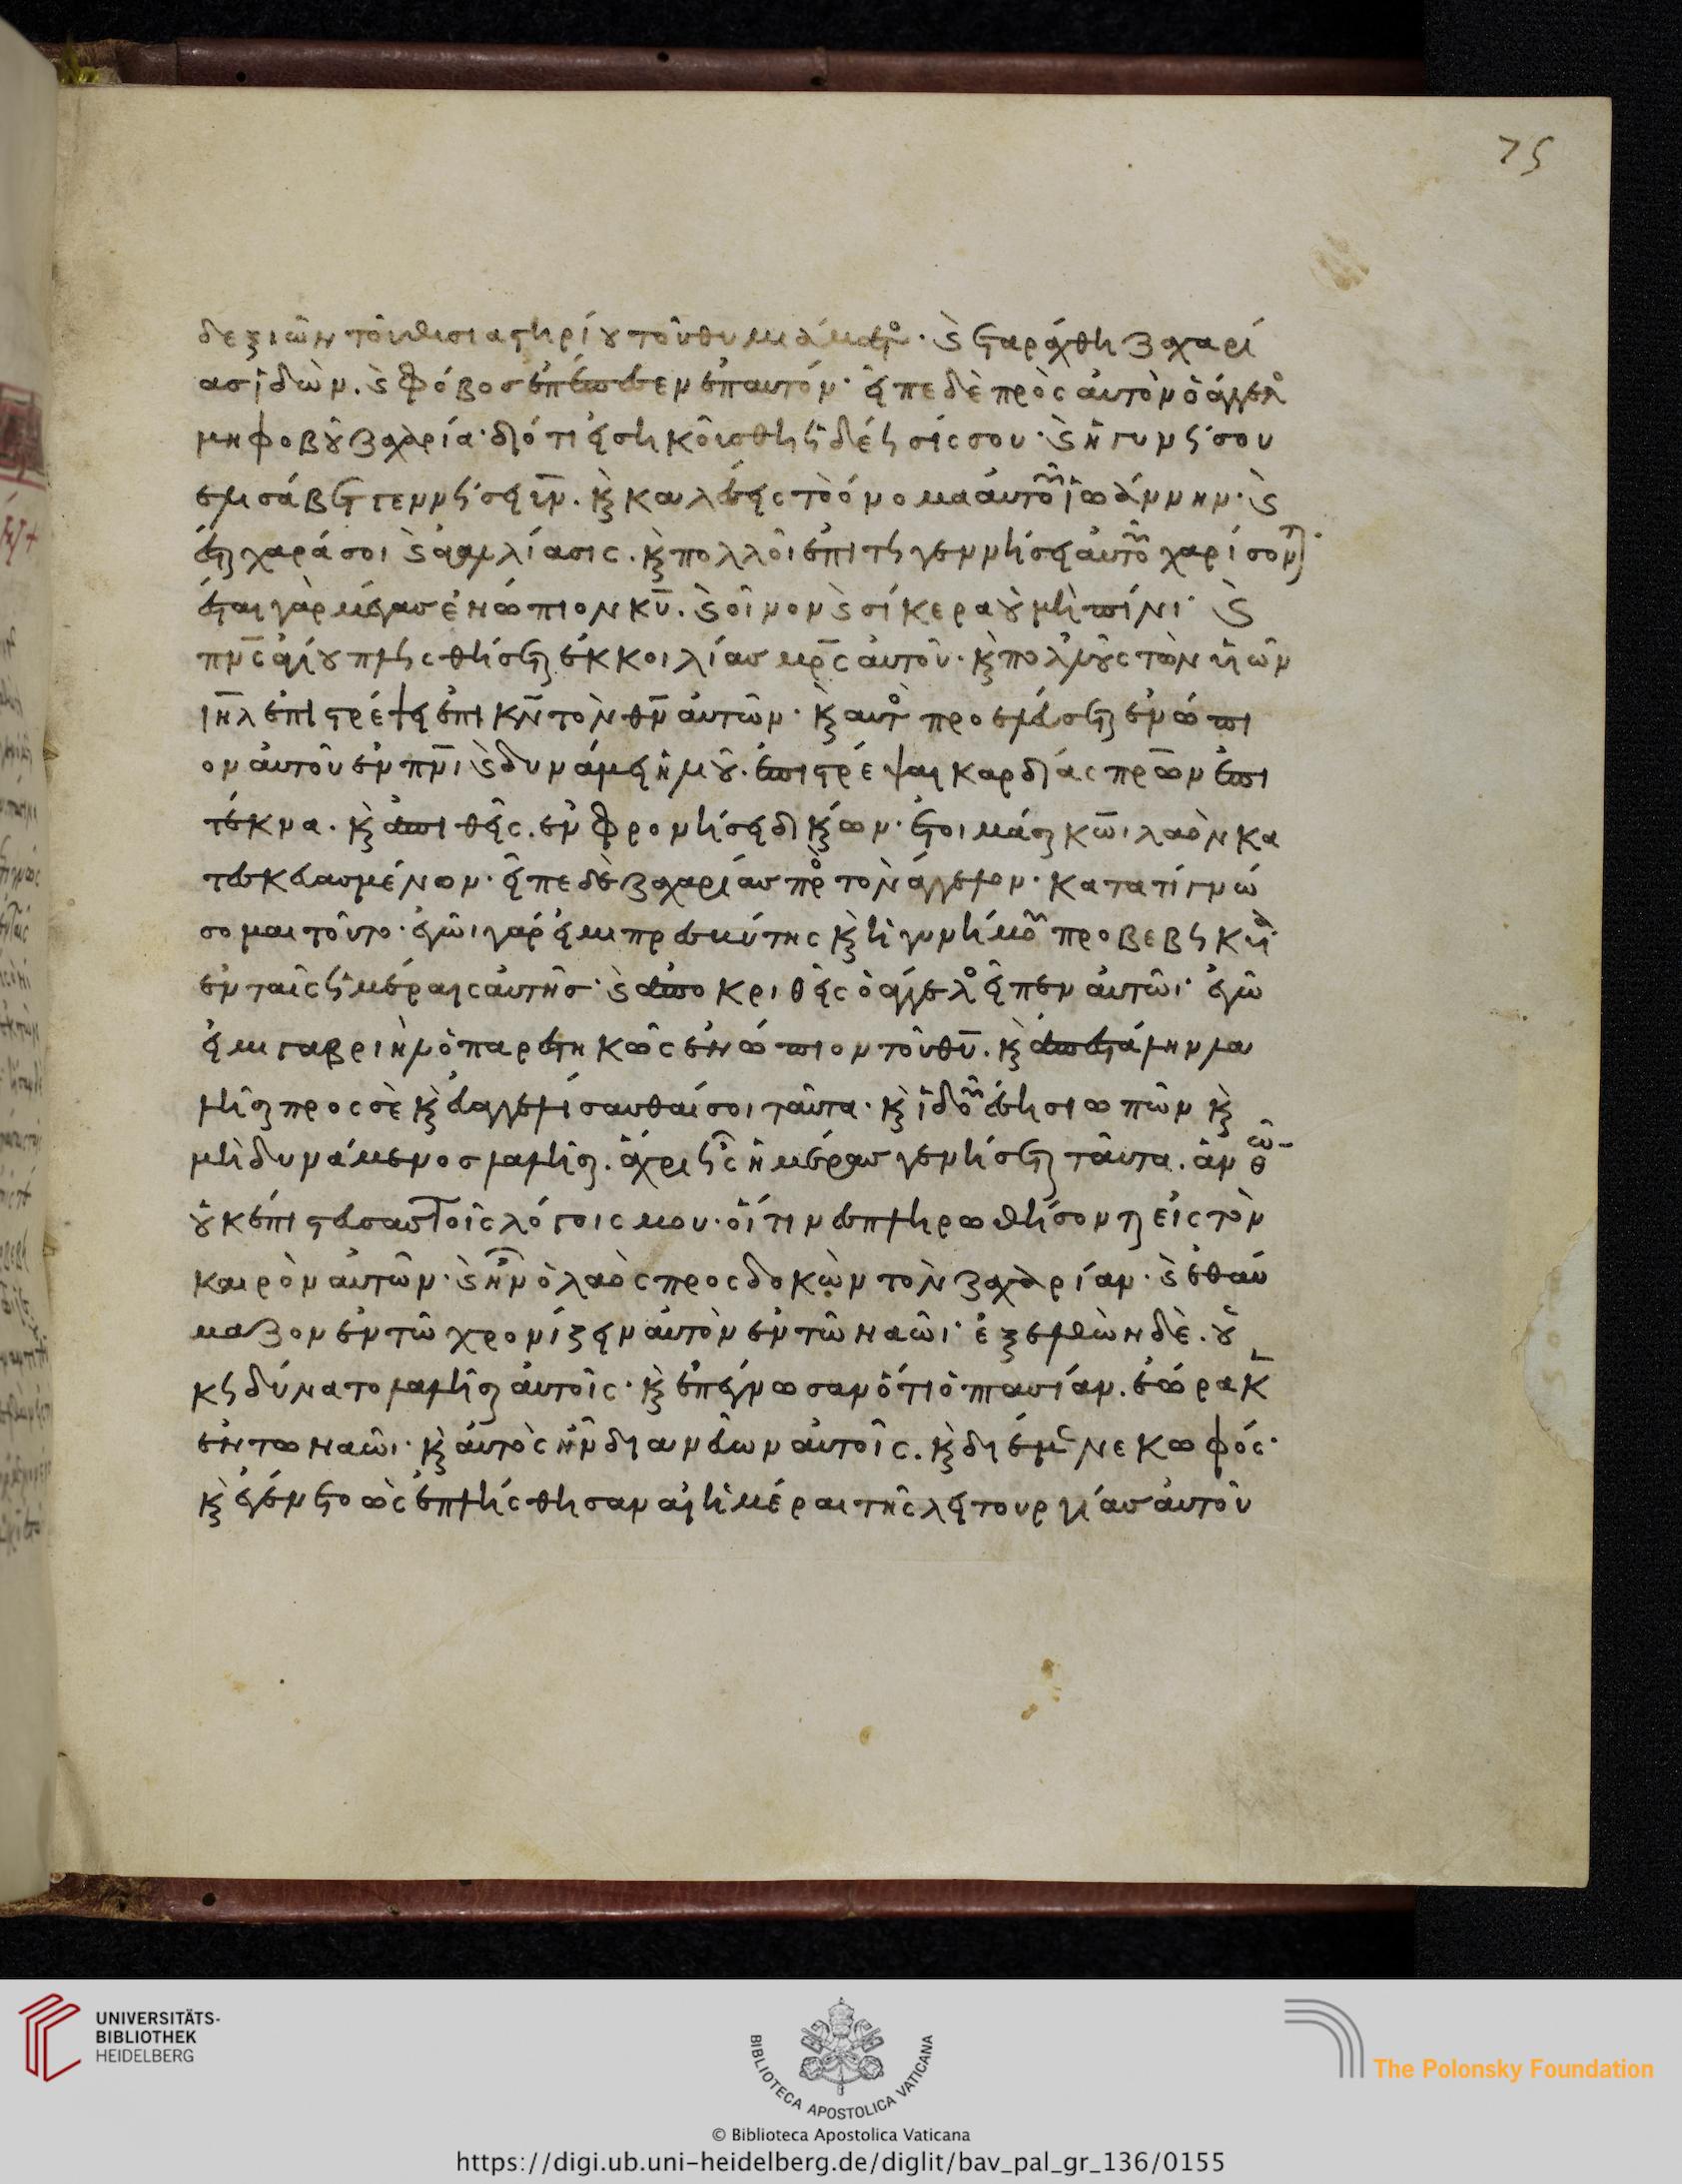 75
δεξιῶν τοῦ θυσιαστηρίου τοῦ θυμιάματος· καὶ ἐταράχθη ζαχαρί
ας ἰδὼν. καὶ φόβος ἐπέπεσεν ἐπ αυτόν· εἶπε δὲ πρὸς αὐτὸν ὁ ἄγγελος
μη φοβοῦ ζαχαρία· διότι εἰσηκούσθη ἡ δέησίς σου· καὶ ἡ γυνή σου
ελισάβετ γεννήσει υν̅. καὶ καλέσεις τὸ όνομα αὐτοῦ ϊωάννην· καὶ
έσται χαρά σοι καὶ ἀγαλλίασις. καὶ πολλοὶ ἐπὶ τῇ γεννήσει αὐτοῦ χαρήσονται·
έσται γὰρ μέγας ἐνώπιον κυ̅. καὶ οἶνον καὶ σίκερα οὐ μὴ πίνη· καὶ
πνς̅ ἁγίου πλησθήσεται ἐκ κοιλίας μρς̅ αὐτοῦ· καὶ πολλοὺς τῶν υἱῶν
ιηλ̅ ἐπιστρέψει ἐπι κν̅ τὸν θν̅ αὐτῶν· καὶ αυτὸς προελεύσεται ενώπι
ον αὐτοῦ ἐν πνι̅ καὶ δυνάμει ἡλιοῦ. ἐπιστρέψαι καρδίας πρων̅ ἐπι
τέκνα. καὶ ἀπιθεῖς. ἐν φρονήσει δικαίων· ἑτοιμάσαι κωι̅ λαὸν κα
τεσκευασμένον· εἶπε δὲ ζαχαρίας πρὸς τὸν άγγελον· κατα τί γνώ
σομαι τοῦτο· ἐγὼι γάρ εἰμι πρεσβύτης καὶ ἡ γυνή μου προβεβηκυῖα
ἐν ταῖς ἡμέραις αυτῆς· καὶ ἀποκριθεὶς ὁ άγγελος εἶπεν αὐτῶι· ἐγὼ
εἰμι γαβριὴλ ὁ παρεστηκὼς ἐνώπιον τοῦ θυ̅. καὶ ἀπεστάλην λα
λῆσαι προς σὲ καὶ εὐαγγελίσασθαί σοι ταῦτα· καὶ ἰδοὺ έση σιωπῶν καὶ
μὴ δυνάμενος λαλῆσαι. ἄχρι ἧς ἡμέρας γενήσεται ταῦτα. ἀνθ ὧν
οὐκ ἐπίστευσας τοῖς λόγοις μου· οἵτινες πληρωθήσονται εἰς τὸν
καιρὸν αὐτῶν· καὶ ἦν ὁ λαὸς προςδοκὼν τὸν ζαχαρίαν· καὶ ἐθαύ
μαζον ἐν τῶ χρονίζειν αὐτὸν ἐν τῶ ναῶι· ἐξελθὼν δὲ. οὐ
κ ηδύνατο λαλῆσαι αὐτοῖς· καὶ ἐπέγνωσαν ὅτι ὀπτασίαν. ἑώρακεν
ἐν τω ναῶι· καὶ αὐτὸς ἦν διανεύων αὐτοῖς. καὶ διέμενε κωφός·
καὶ ἐγένετο ὡς ἐπλήσθησαν αἱ ἡμέραι τῆς λειτουργίας αὐτοῦ
UNIVERSITÄTS-
BIBLIOTHEK
HEIDELBERG
BIBLIOTECA APOSTOLICA VATICANA
The Polonsky Foundation
© Biblioteca Apostolica Vaticana
https://digi.ub.uni-heidelberg.de/diglit/bav_pal_gr_136/0155